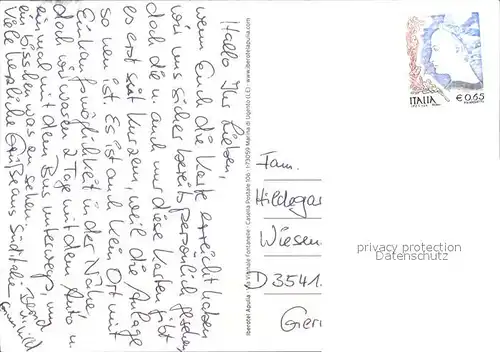 Hallo Ihr Lieben,
wenn Euch die Karte erreicht haben
wir uns sicher bereits persönlich gesehen,
doch die u. auch nur diese Karten gibt
es erst seit Kurzem, weil die Anlage
so neu ist. Es ist auch kein Ort mit
Einkaufsmöglichkeit in der Nähe,
doch wir waren 2 Tage mit dem Auto u.
einmal mit dem Bus unterwegs, um
ein bisschen was zu sehen.
Viele herzliche Grüße aus Süditalien
Iberotel Apulia - Via Vianale Fontanelle - Casella Postale 106 - I-73059 Marina di Ugento (LE) - www.iberotelapulia.com
ITALIA
€ 0,65
Fam.
Hildegar
Wiesen
D 3541
Ger
privacy protection
Datenschutz